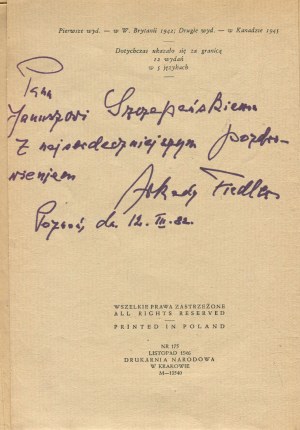 Pierwsze wyd. — w W. Brytanii 1942; Drugie wyd. — w Kanadzie 1943
Dotychczas ukazało się za granicą
12 wydań
w 5 językach
Panu
Januszowi Szczepańskiemu
z najserdeczniejszym pozdro-
wieniem
Arkady Fiedler
Poznań, dn 12. III. 82.
WSZELKIE PRAWA ZASTRZEŻONE
ALL RIGHTS RESERVED
PRINTED IN POLAND
NR 175
LISTOPAD 1946
DRUKARNIA NARODOWA
W KRAKOWIE
M—13540